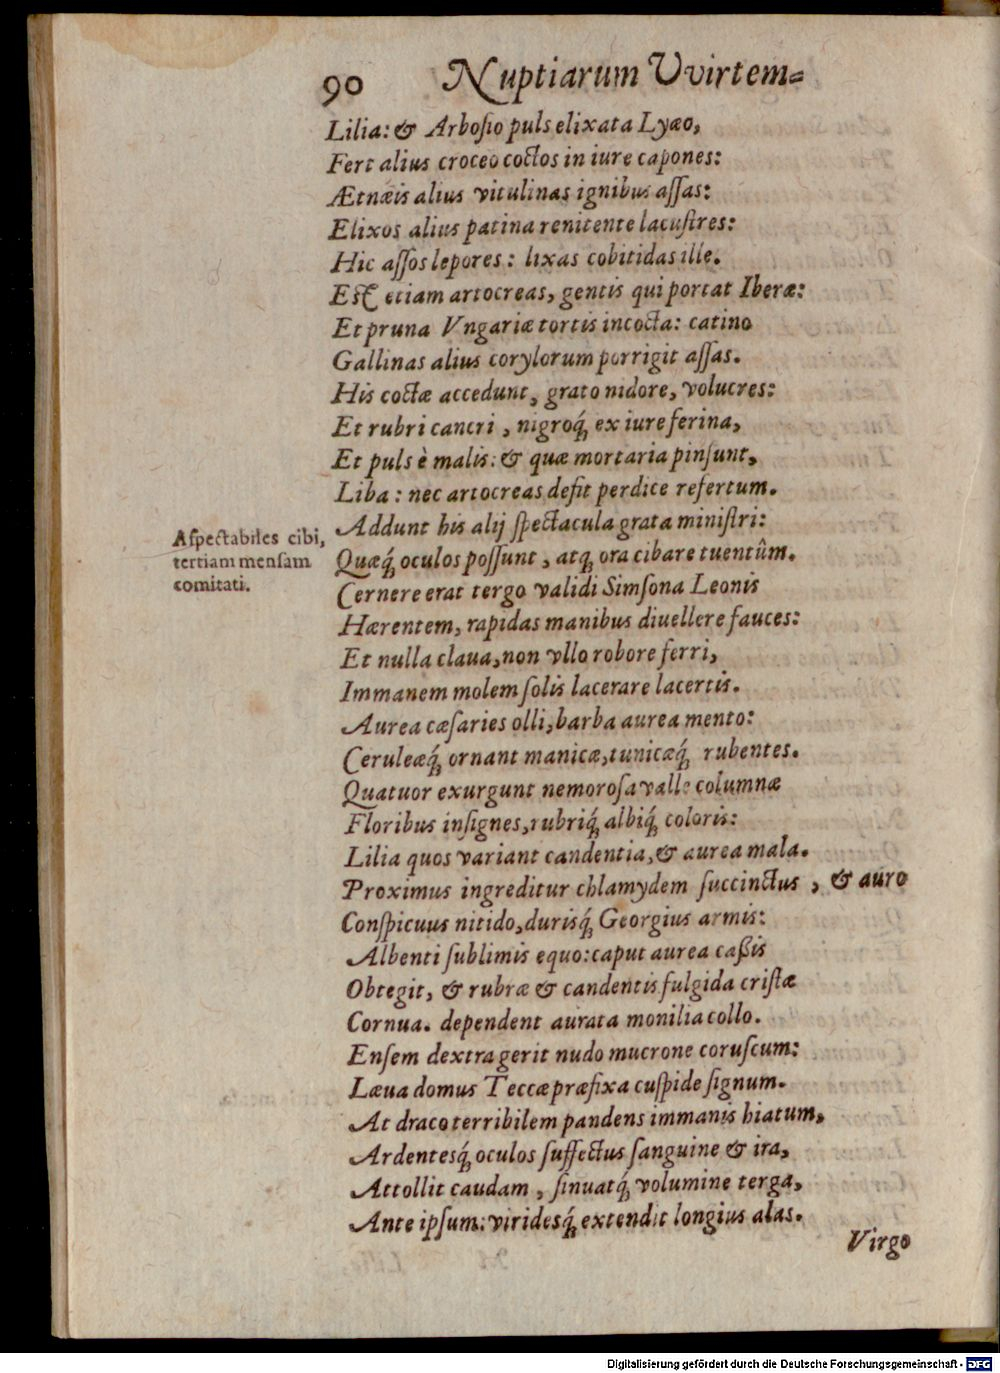 90 Nuptiarum Vvirtem=
Lilia: & Arbosio puls elixata Lyæo,
Fert alius croceo coctos in iure capones:
Ætnæis alius vitulinas ignibus assas:
Elixos alius patina renitente lacustres:
Hic assos lepores: lixas cobitidas ille.
Est etiam artocreas, gentis qui portat Iberæ:
Et pruna Vngariæ tortis incocta: catino
Gallinas alius corylorum porrigit assas.
His coctæ accedunt, grato nidore, volucres:
Et rubri cancri, nigroq́; ex iure ferina,
Et puls è malis: & quæ mortaria pinsunt,
Liba: nec artocreas defit perdice refertum.
Addunt his alij spectacula grata ministri:
Aspectabiles cibi,
tertiam mensam
comitati.
Quæq́; oculos possunt, atq; ora cibare tuentûm.
Cernere erat tergo validi Simsona Leonis
Hærentem, rapidas manibus diuellere fauces:
Et nulla claua, non vllo robore ferri,
Immanem molem solis lacerare lacertis.
Aurea cæsaries olli, barba aurea mento:
Ceruleæq́; ornant manicæ, tunicæq́; rubentes.
Quatuor exurgunt nemorosa valle columnæ
Floribus insignes, rubriq́; albiq́; coloris:
Lilia quos variant candentia, & aurea mala.
Proximus ingreditur chlamydem succinctus, & auro
Conspicuus nitido, durisq́; Georgius armis:
Albenti sublimis equo: caput aurea caßis
Obtegit, & rubræ & candentis fulgida cristæ
Cornua. dependent aurata monilia collo.
Ensem dextra gerit nudo mucrone coruscum:
Læua domus Teccæ præfixa cuspide signum.
At draco terribilem pandens immanis hiatum,
Ardentesq́; oculos suffectus sanguine & ira,
Attollit caudam, sinuatq́; volumine terga,
Ante ipsum: viridesq́; extendit longius alas.
Virgo
Digitalisierung gefördert durch die Deutsche Forschungsgemeinschaft - DFG